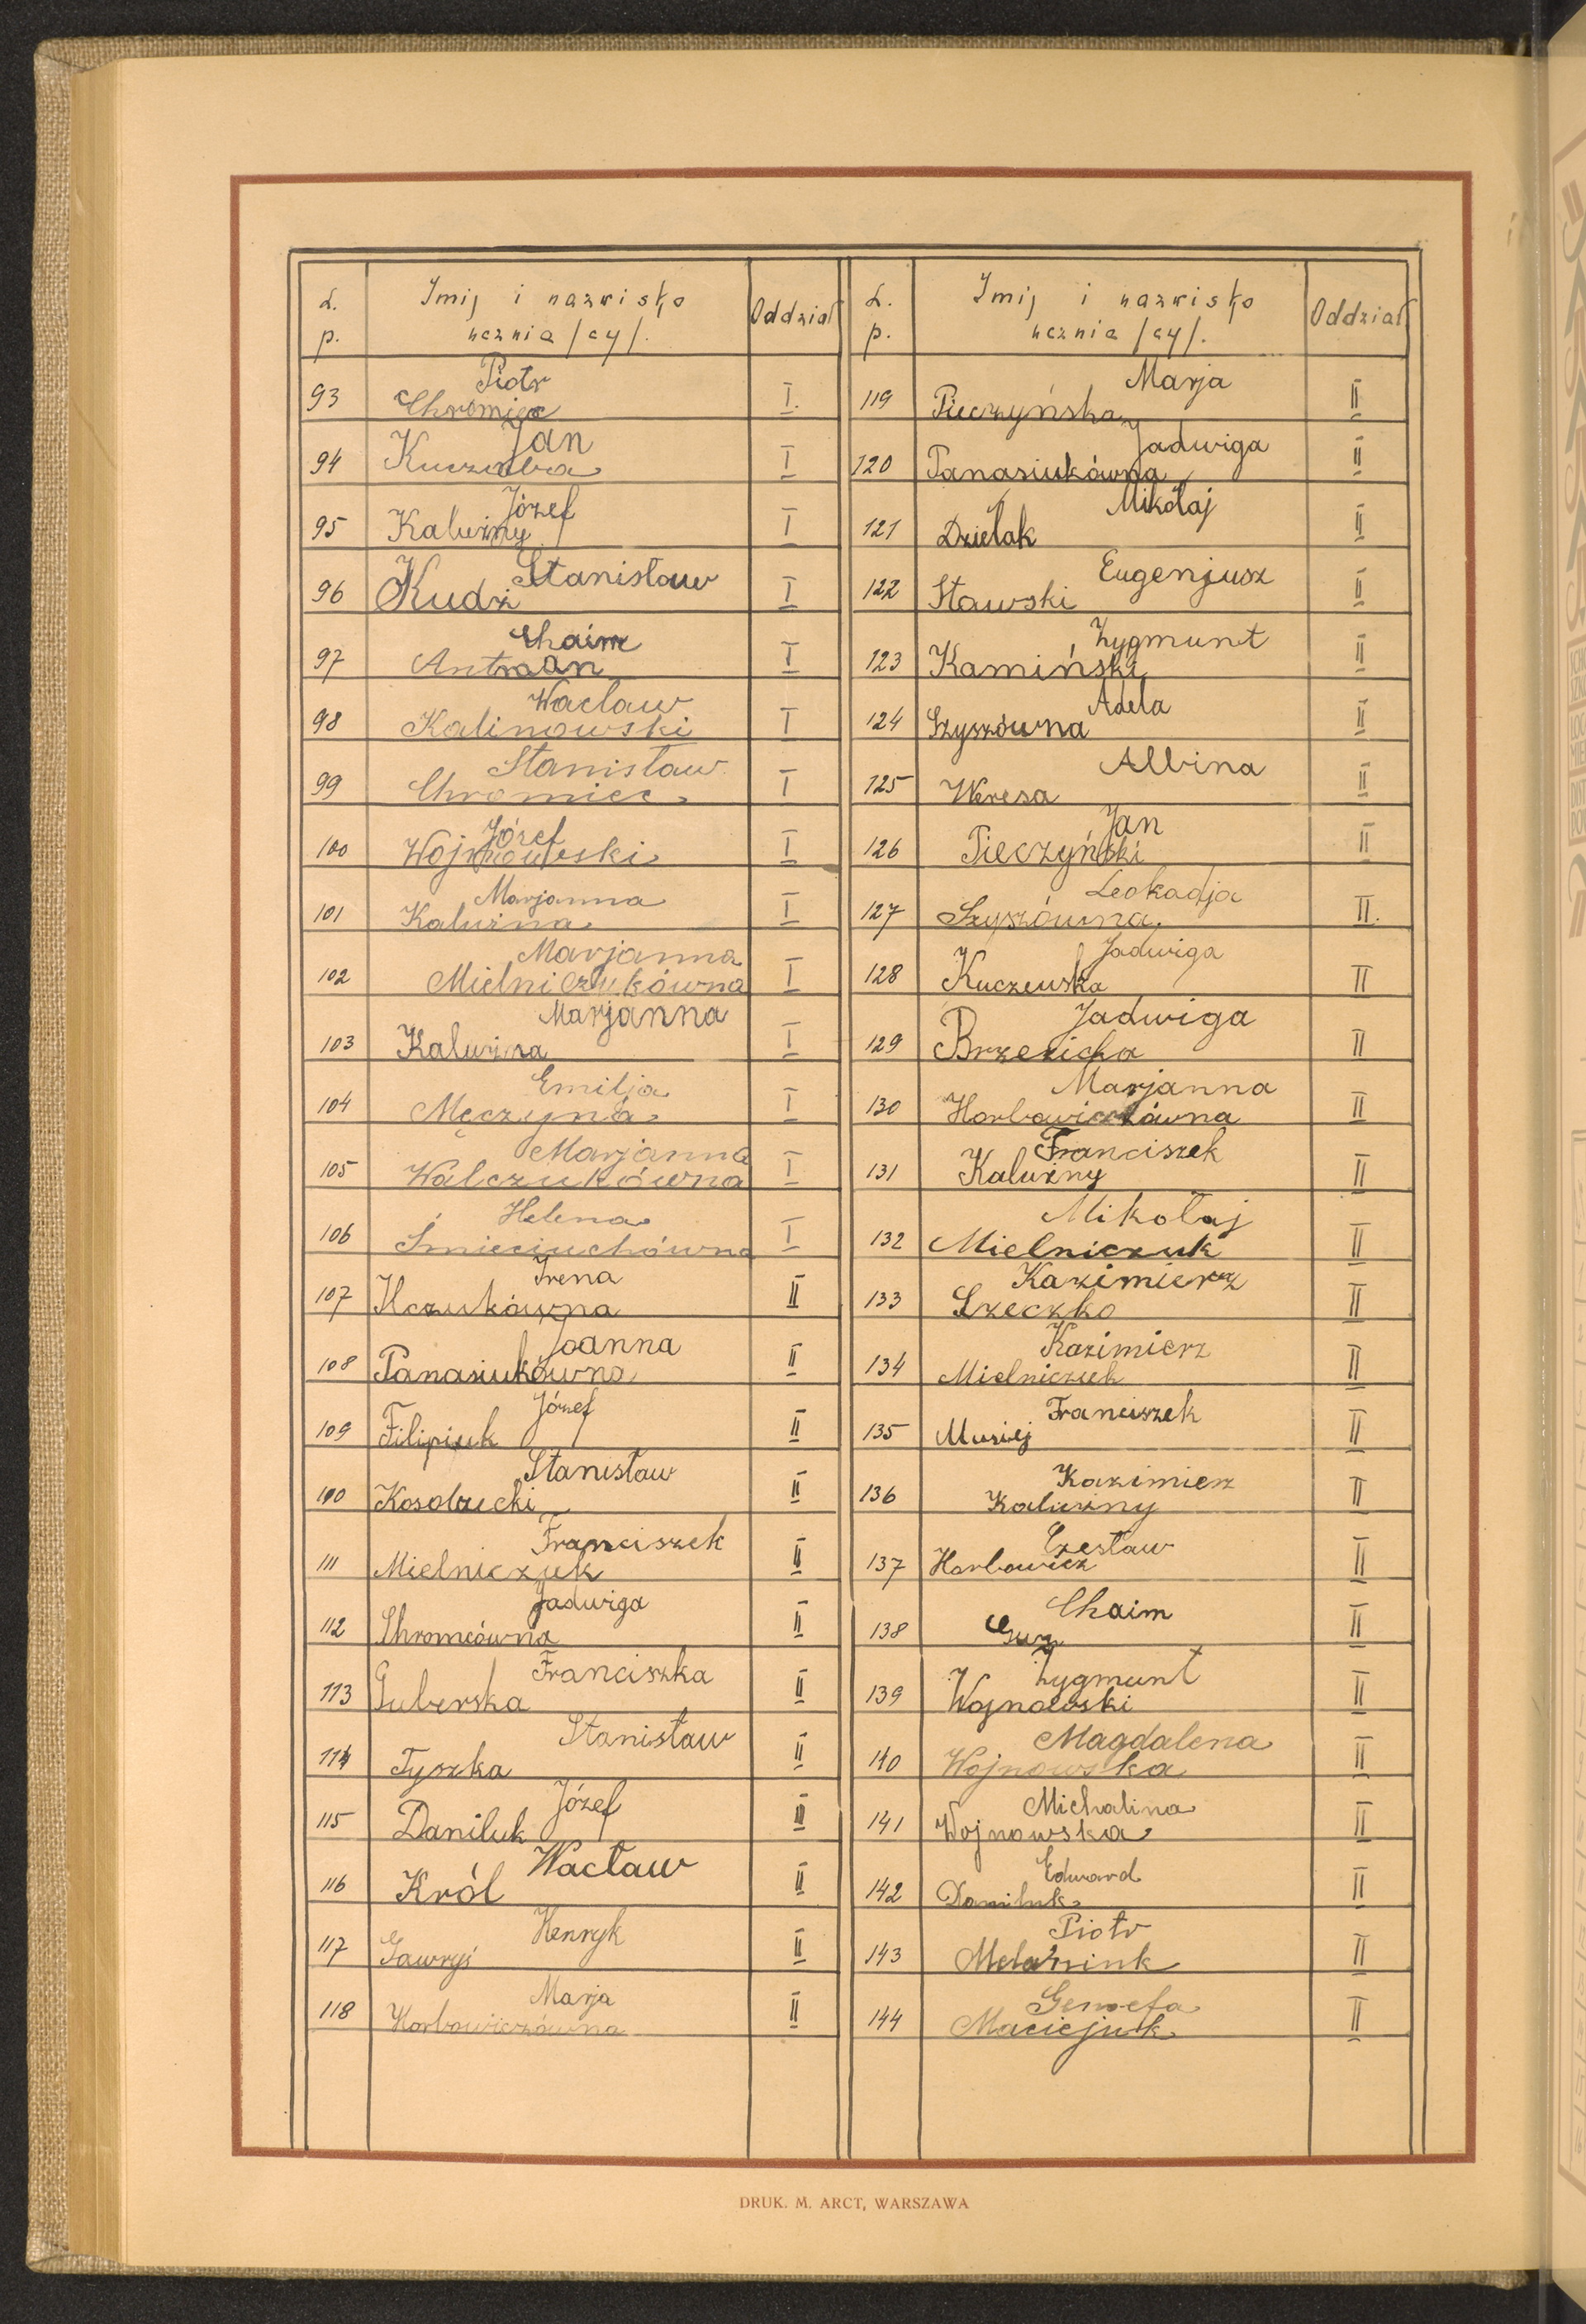 L. p. Imię i nazwisko ucznia /cy/. Oddział
93 Piotr Chromiec I.
94 Jan Kuczaba I
95 Józef Kaluzny I
96 Stanisław Kudź I
97 Chaim Antman I
98 Wacław Kalinowski I
99 Stanisław Chromiec I
100 Józef Wojnowski I
101 Marjanna Kaluzna I
102 Marjanna Mielniczukówna I
103 Marjanna Kaluzna I
104 Emilja Męczyna I
105 Marjanna Walczukówna I
106 Helena Śmieciuchówna I
107 Irena Ilczukówna II
108 Joanna Panasiukówna II
109 Józef Filipiuk II
110 Stanisław Kosobucki II
111 Franciszek Mielniczuk II
112 Jadwiga Chromcówna II
113 Franciszka Guberska II
114 Stanisław Tyszka II
115 Józef Daniluk II
116 Wacław Król II
117 Henryk Gawryś II
118 Marja Horbowiczówna II
L. p. Imię i nazwisko ucznia /cy/. Oddział
119 Marja Pieczyńska II
120 Jadwiga Panasiukówna II
121 Mikołaj Dzielak II
122 Eugenjusz Stawski II
123 Zygmunt Kamiński II
124 Adela Szyszówna II
125 Albina Weresa II
126 Jan Pieczyński II
127 Leokadja Szyszówna II.
128 Jadwiga Kuczewska II
129 Jadwiga Brzezicka II
130 Marjanna Horbowiczówna II
131 Franciszek Kaluzny II
132 Mikołaj Mielniczuk II
133 Kazimierz Szeczko II
134 Kazimierz Mielniczuk II
135 Franciszek Musiej II
136 Kazimierz Kaluzny II
137 Czesław Horbowicz II
138 Chaim II
139 Zygmunt Wojnowski II
140 Magdalena Wojnowska II
141 Michalina Wojnowska II
142 Edward Daniluk II
143 Piotr Melaniuk II
144 Genoefa Maciejuk II
DRUK. M. ARCT, WARSZAWA